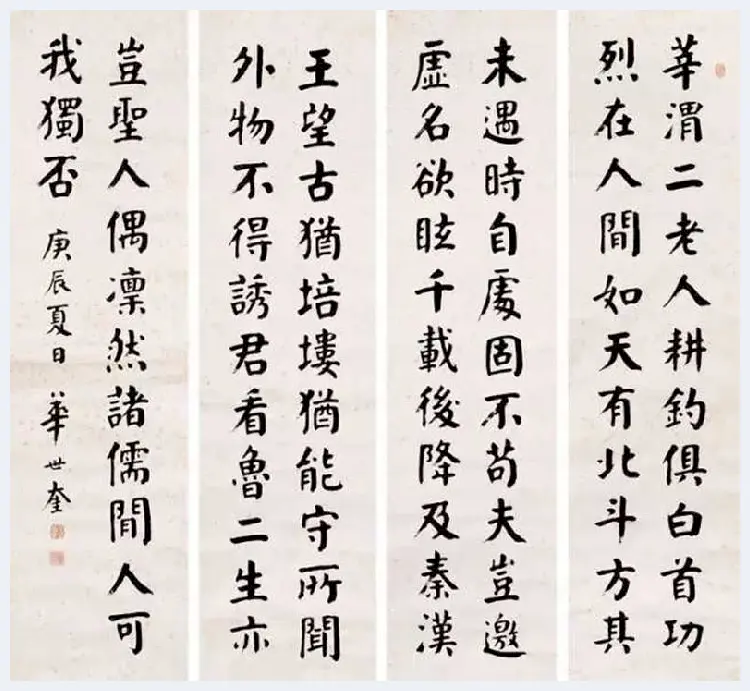 莘渭二老人耕釣俱白首功
烈在人間如天有北斗方其
未遇時自處固不苟夫豈邀
虛名欲眩千載後降及秦漢
王望古猶培塿猶能守所聞
外物不得誘君看魯二生亦
豈聖人偶凜然諸儒間人可
我獨否
庚辰夏日 華世奎